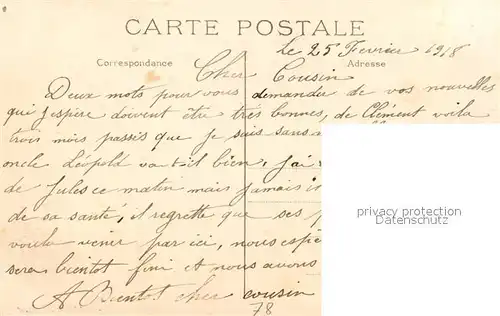 CARTE POSTALE
Le 25 Fevrier 1918
Correspondance
Adresse
Cher Cousin
Deux mots pour vous demander de vos nouvelles
qui j'espère doivent être très bonnes, de Clément voila
trois mois passés que je suis sans
oncle Léopold va t-il bien, j'ai
de Jules ce matin mais jamais
de sa santé, il regrette que ses
voula venir par ici, nous
sera bientot fini et nous avons
A Bientot cher cousin
78
privacy protection
Datenschutz